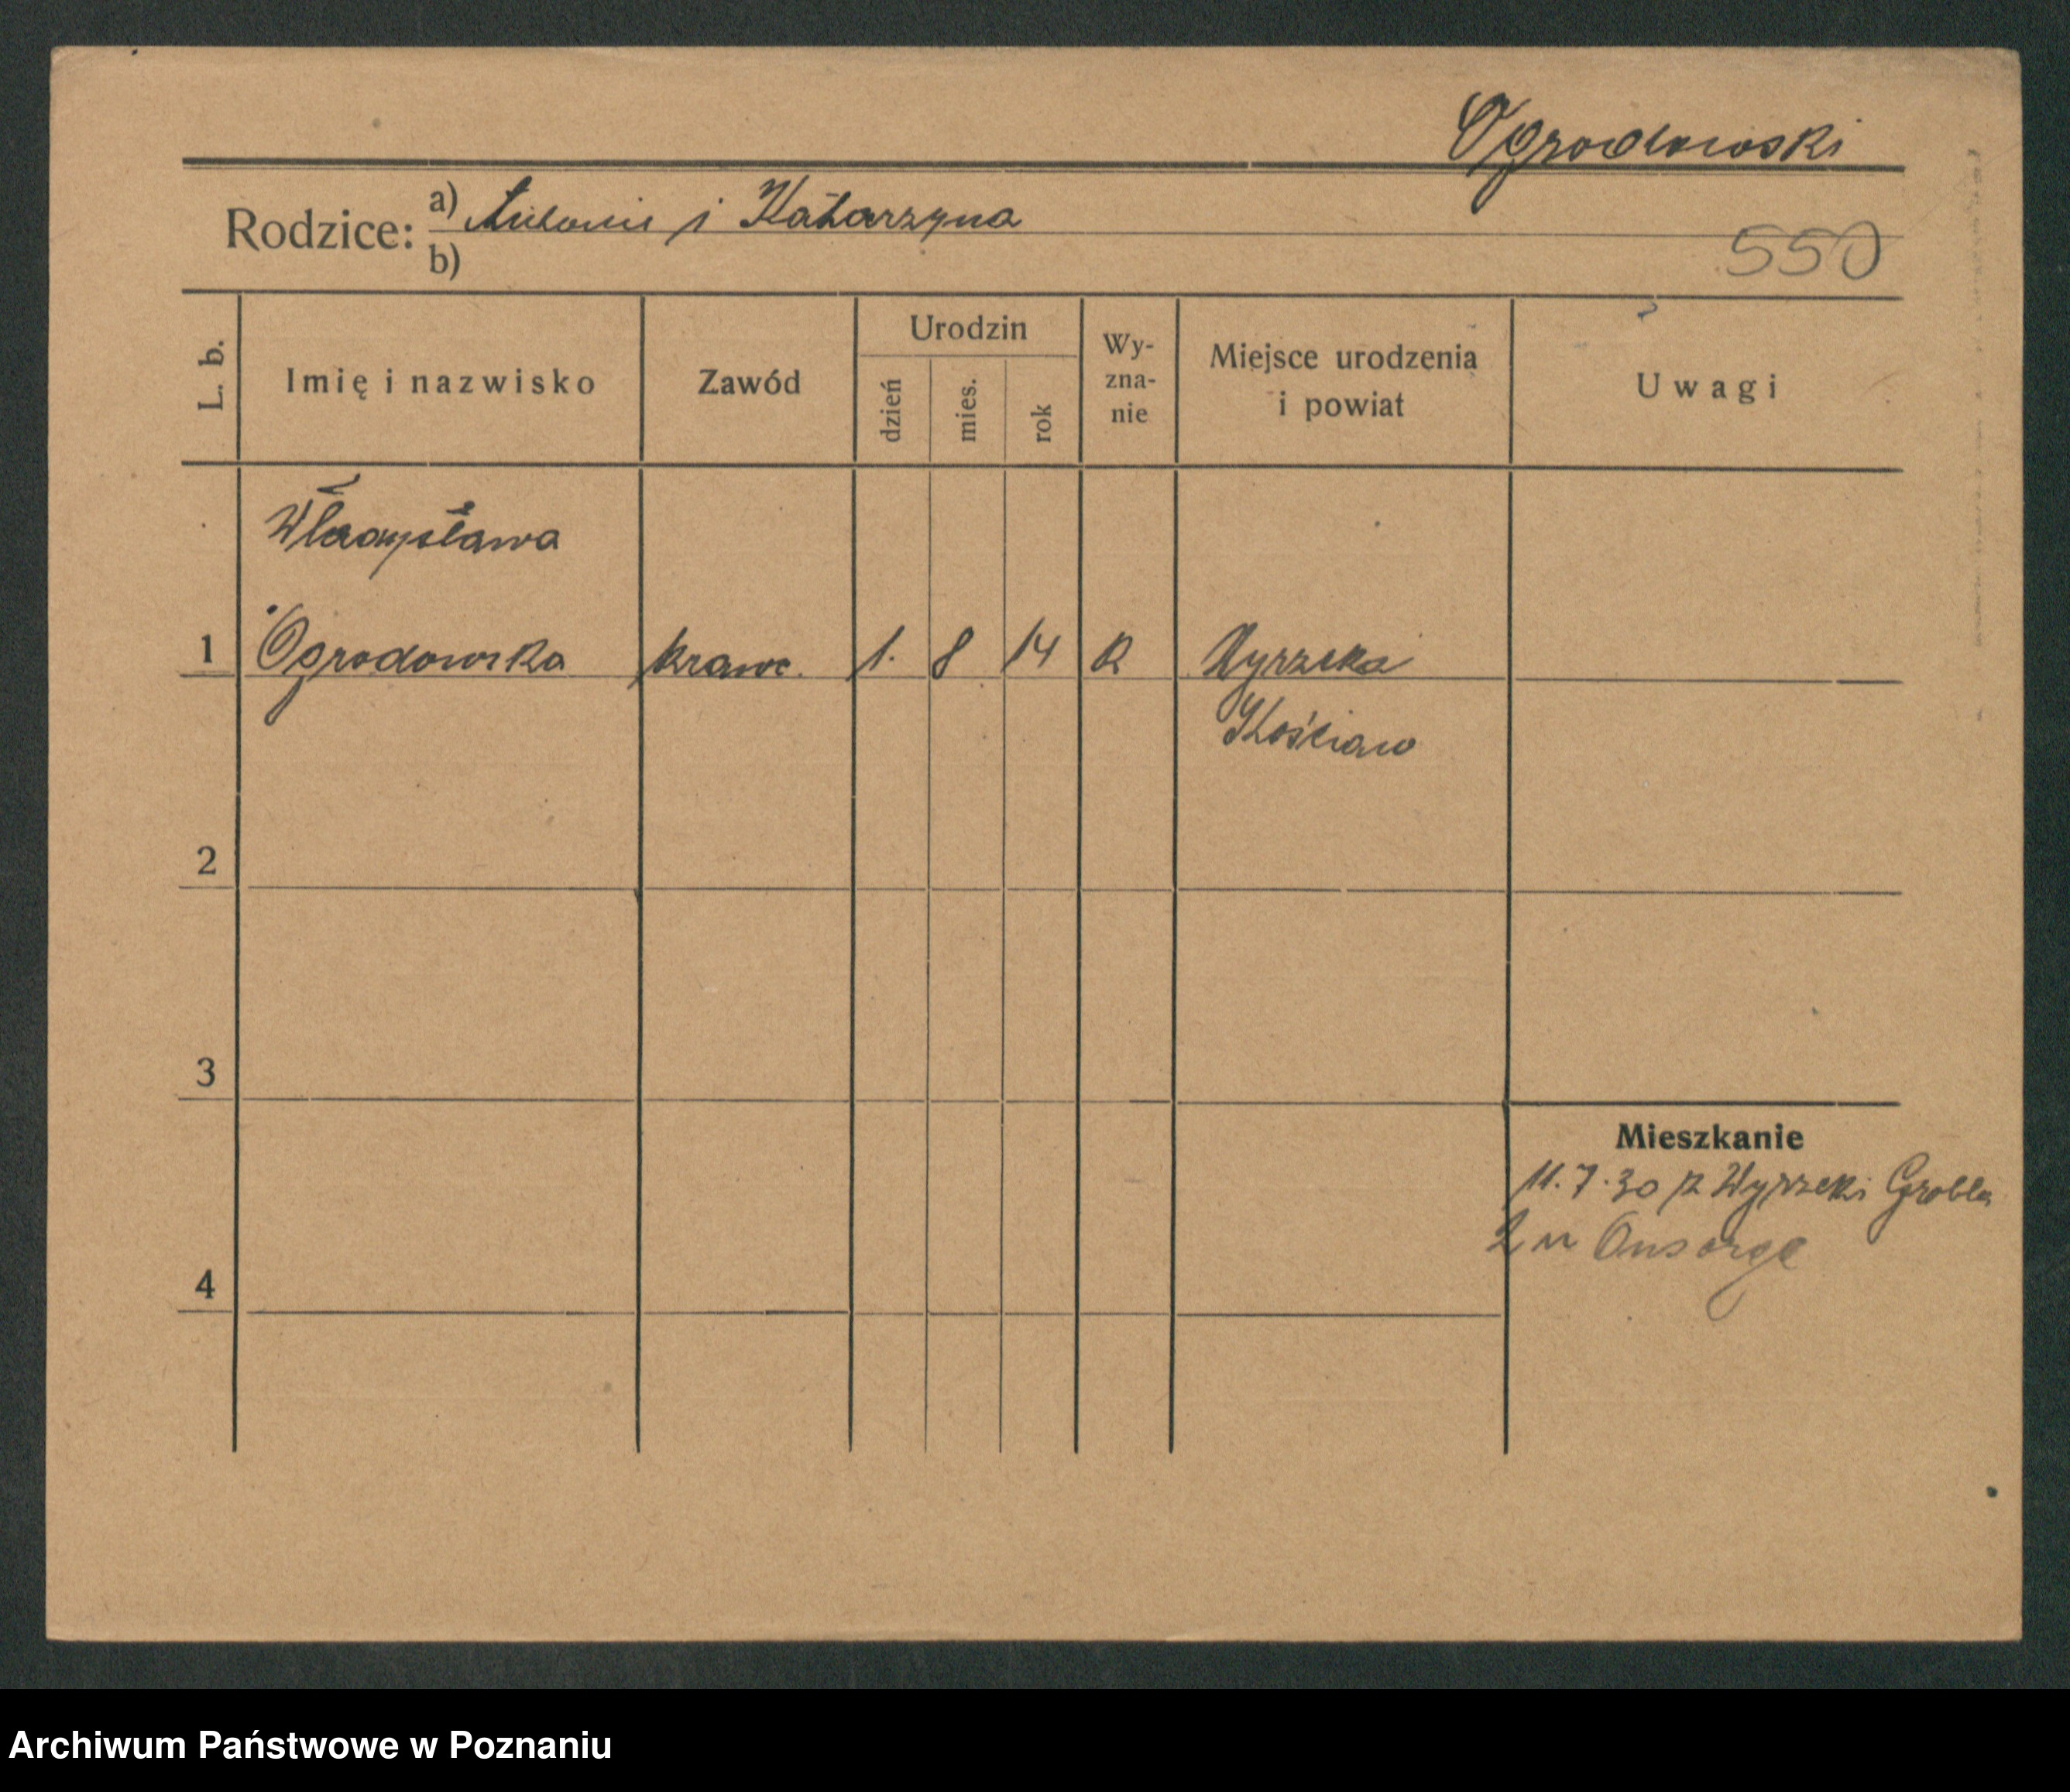 Ogrodowski
Rodzice: a) Antoni i Katarzyna
b)
550
L. b.
Imię i nazwisko
Zawód
Urodzin
dzień
mies.
rok
Wy-
zna-
nie
Miejsce urodzenia
i powiat
Uwagi
Władysława
1 Ogrodowska krawc. 1. 8 14 R
Kościan
2
3
4
Mieszkanie
11.7.30 z Wyrzeki Grobla
2 u Onsorge
Archiwum Państwowe w Poznaniu